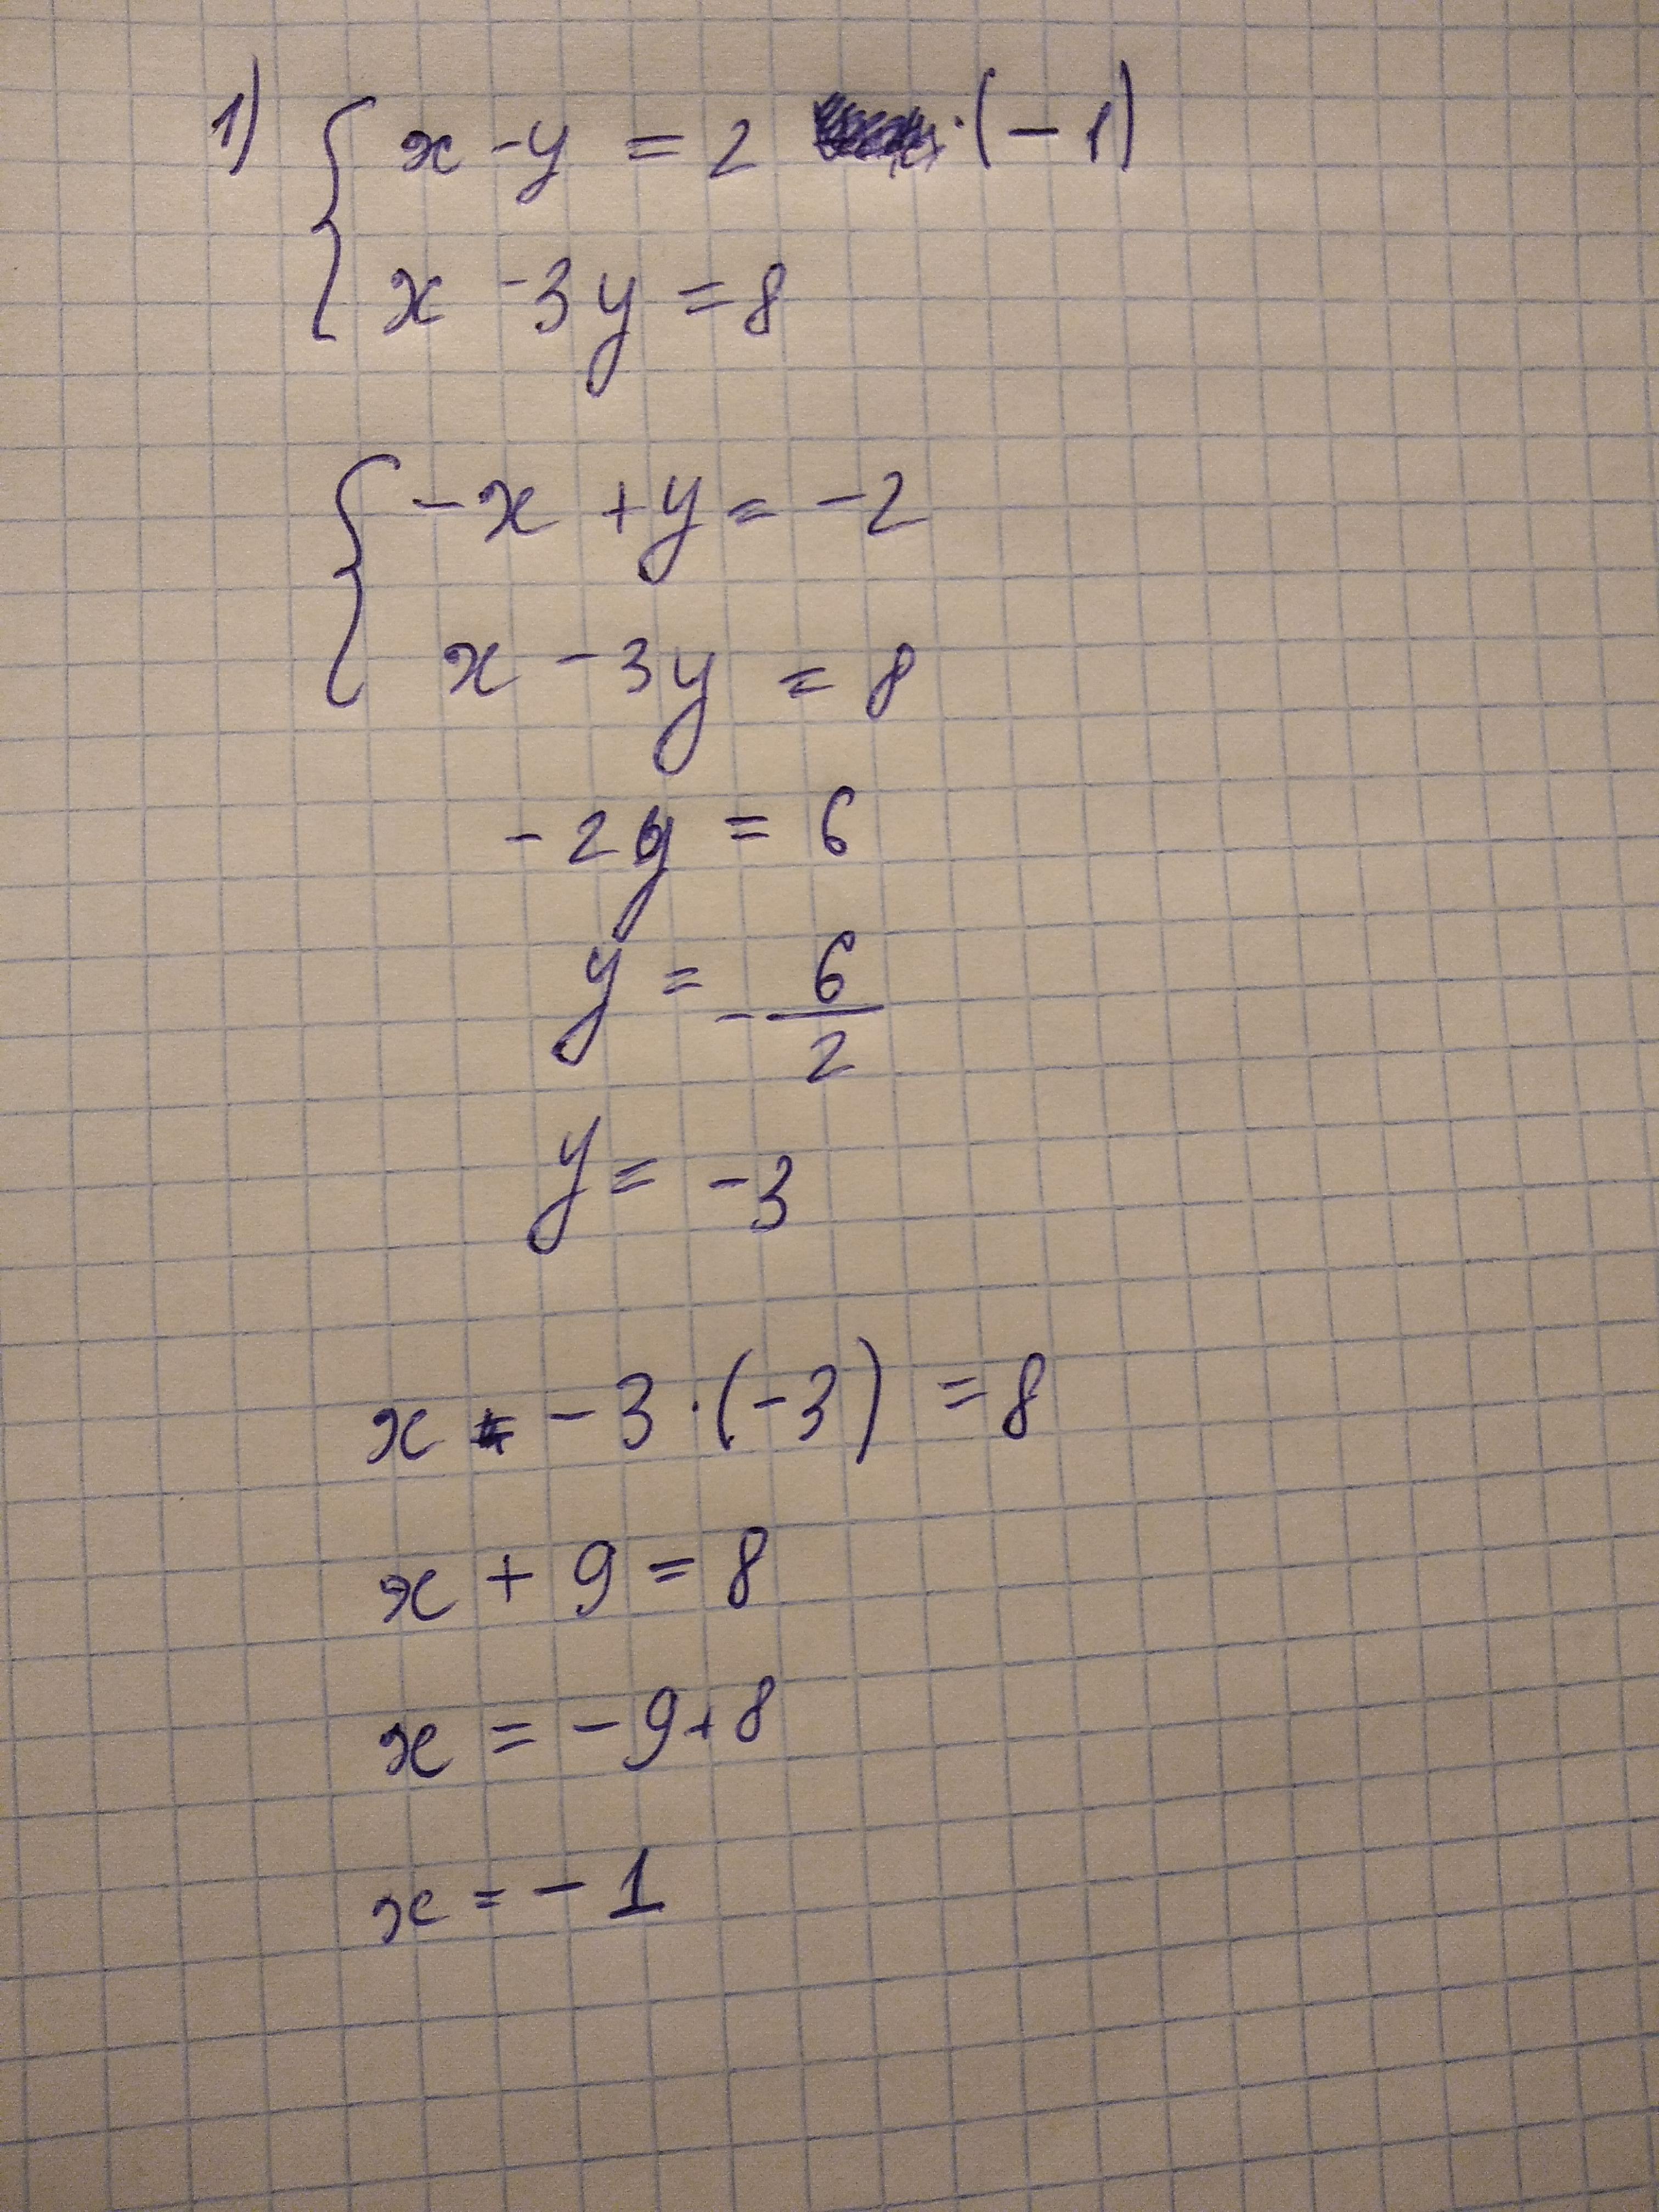 1) { x - y = 2 · (-1)
x - 3y = 8
{ -x + y = -2
x - 3y = 8
-2y = 6
y = - 6/2
y = -3
x - 3 · (-3) = 8
x + 9 = 8
x = -9 + 8
x = -1